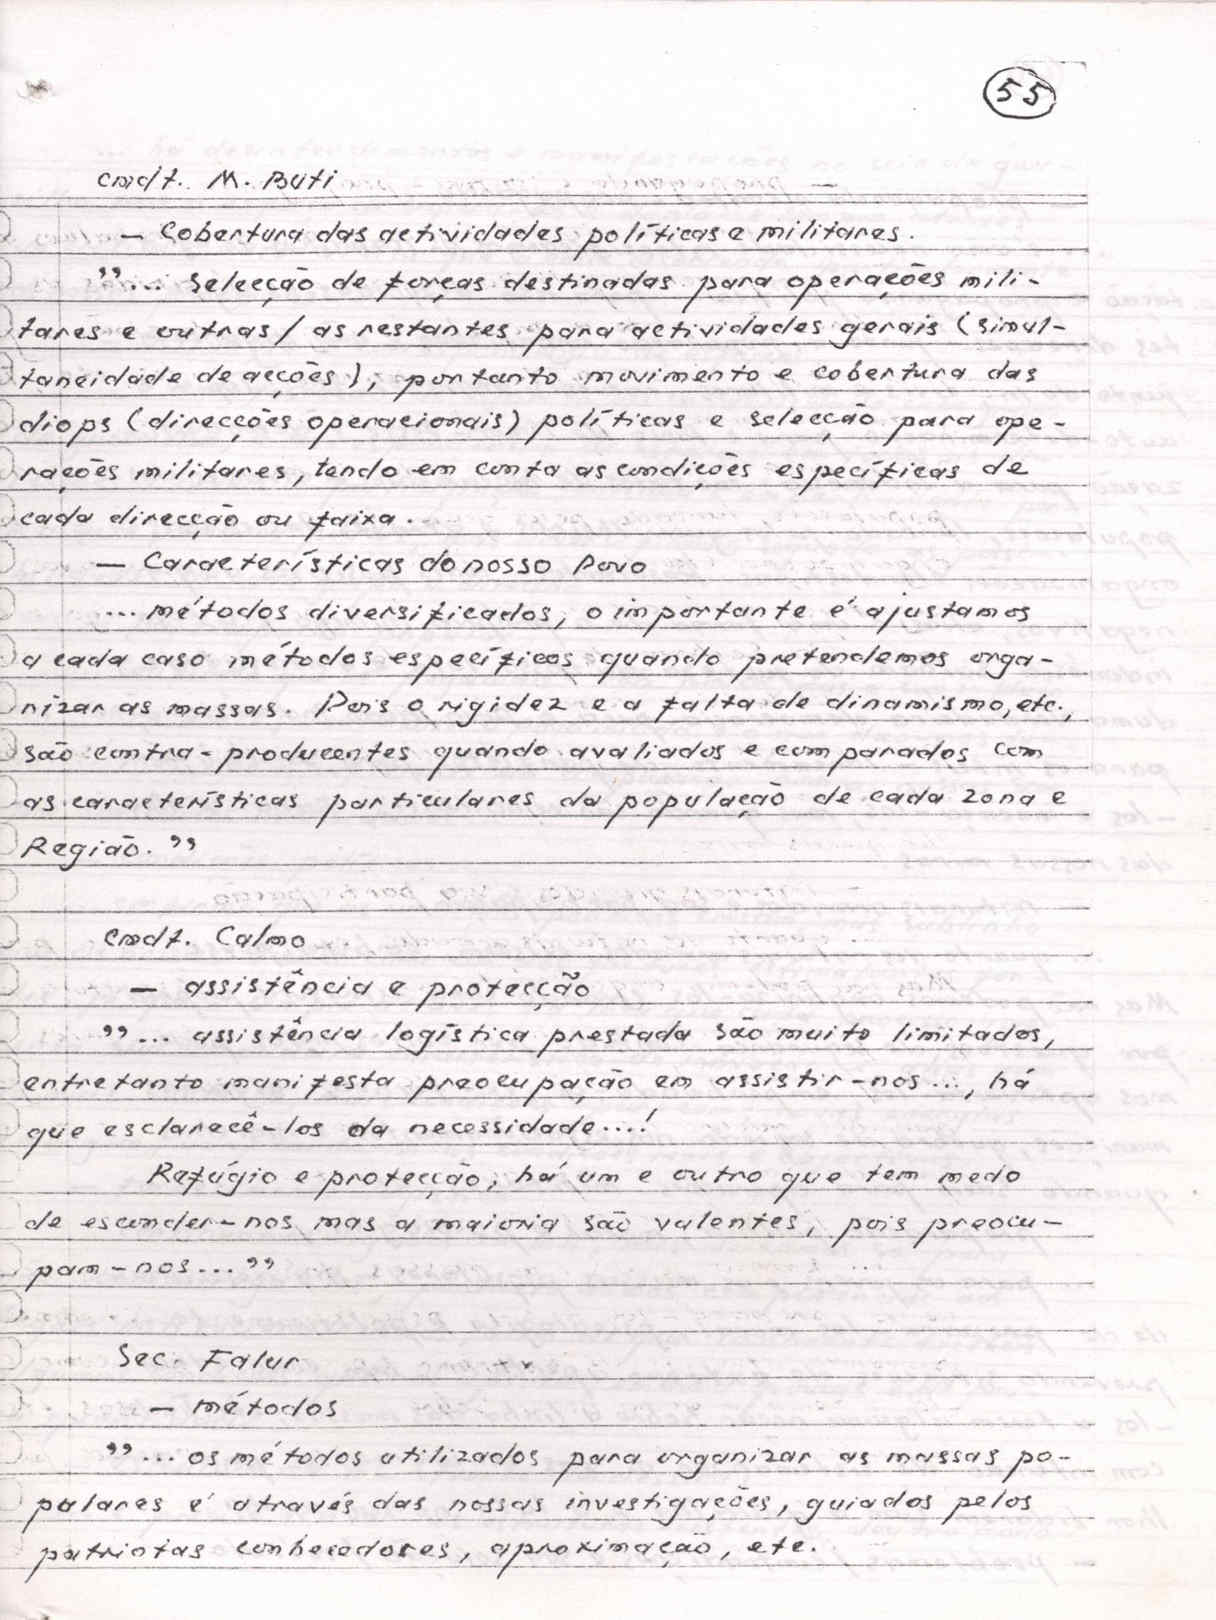 55
cmdt. M. Buti
— Cobertura das actividades políticas e militares.
”... Selecção de forças destinadas para operações mili-
tares e outras / as restantes para actividades gerais (simul-
taneidade de acções), portanto movimento e cobertura das
diops (direcções operacionais) políticas e selecção para ope-
rações militares, tendo em conta as condições específicas de
cada direcção ou faixa.
— Características do nosso Povo
... métodos diversificados, o importante é ajustamos
a cada caso métodos específicos quando pretendemos orga-
nizar as massas. Pois o rigidez e a falta de dinamismo, etc.,
são contra-producentes quando avaliados e comparados com
as características particulares da população de cada zona e
Região.”
cmdt. Calmo
— assistência e protecção
”... assistência logística prestada são muito limitados,
entretanto manifesta preocupação em assistir-nos..., há
que esclarecê-los da necessidade...!
Refúgio e protecção, há um e outro que tem medo
de esconder-nos mas a maioria são valentes, pois preocu-
pam-nos...”
Sec. Falur
— métodos
”... os métodos utilizados para organizar as massas po-
pulares é através das nossas investigações, guiados pelos
patriotas conhecedores, aproximação, etc.